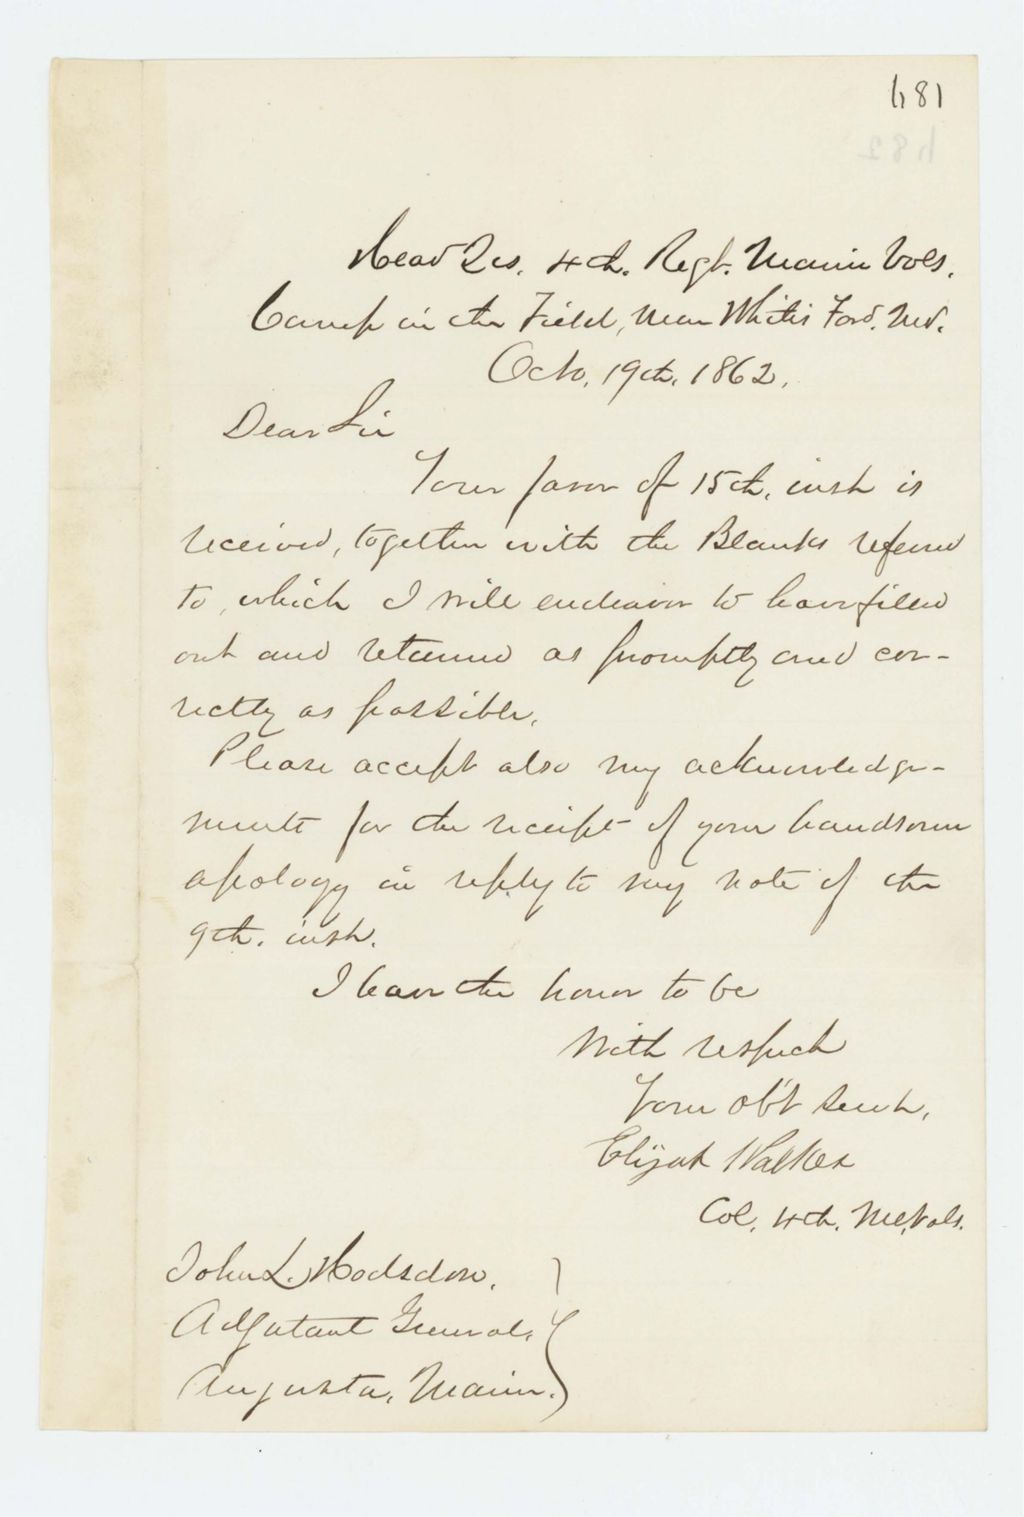 481
482
Head Qrs. 4th. Regt. Maine Vols.
Camp in the Field, near Whites Ford. Md.
Octo. 19th. 1862.
Dear Sir
Your favor of 15th. inst is
received, together with the Blanks referred
to, which I will endeavor to have filled
out and returned as promptly and cor-
rectly as possible.
Please accept also my acknowledge-
ments for the receipt of your handsome
apology in reply to my note of the
9th. inst.
I have the honor to be
With respect
Your obt Servt.
Elijah Walker
Col. 4th. Me. Vols.
John L. Hodsdon.
Adjutant General.
Augusta, Maine.